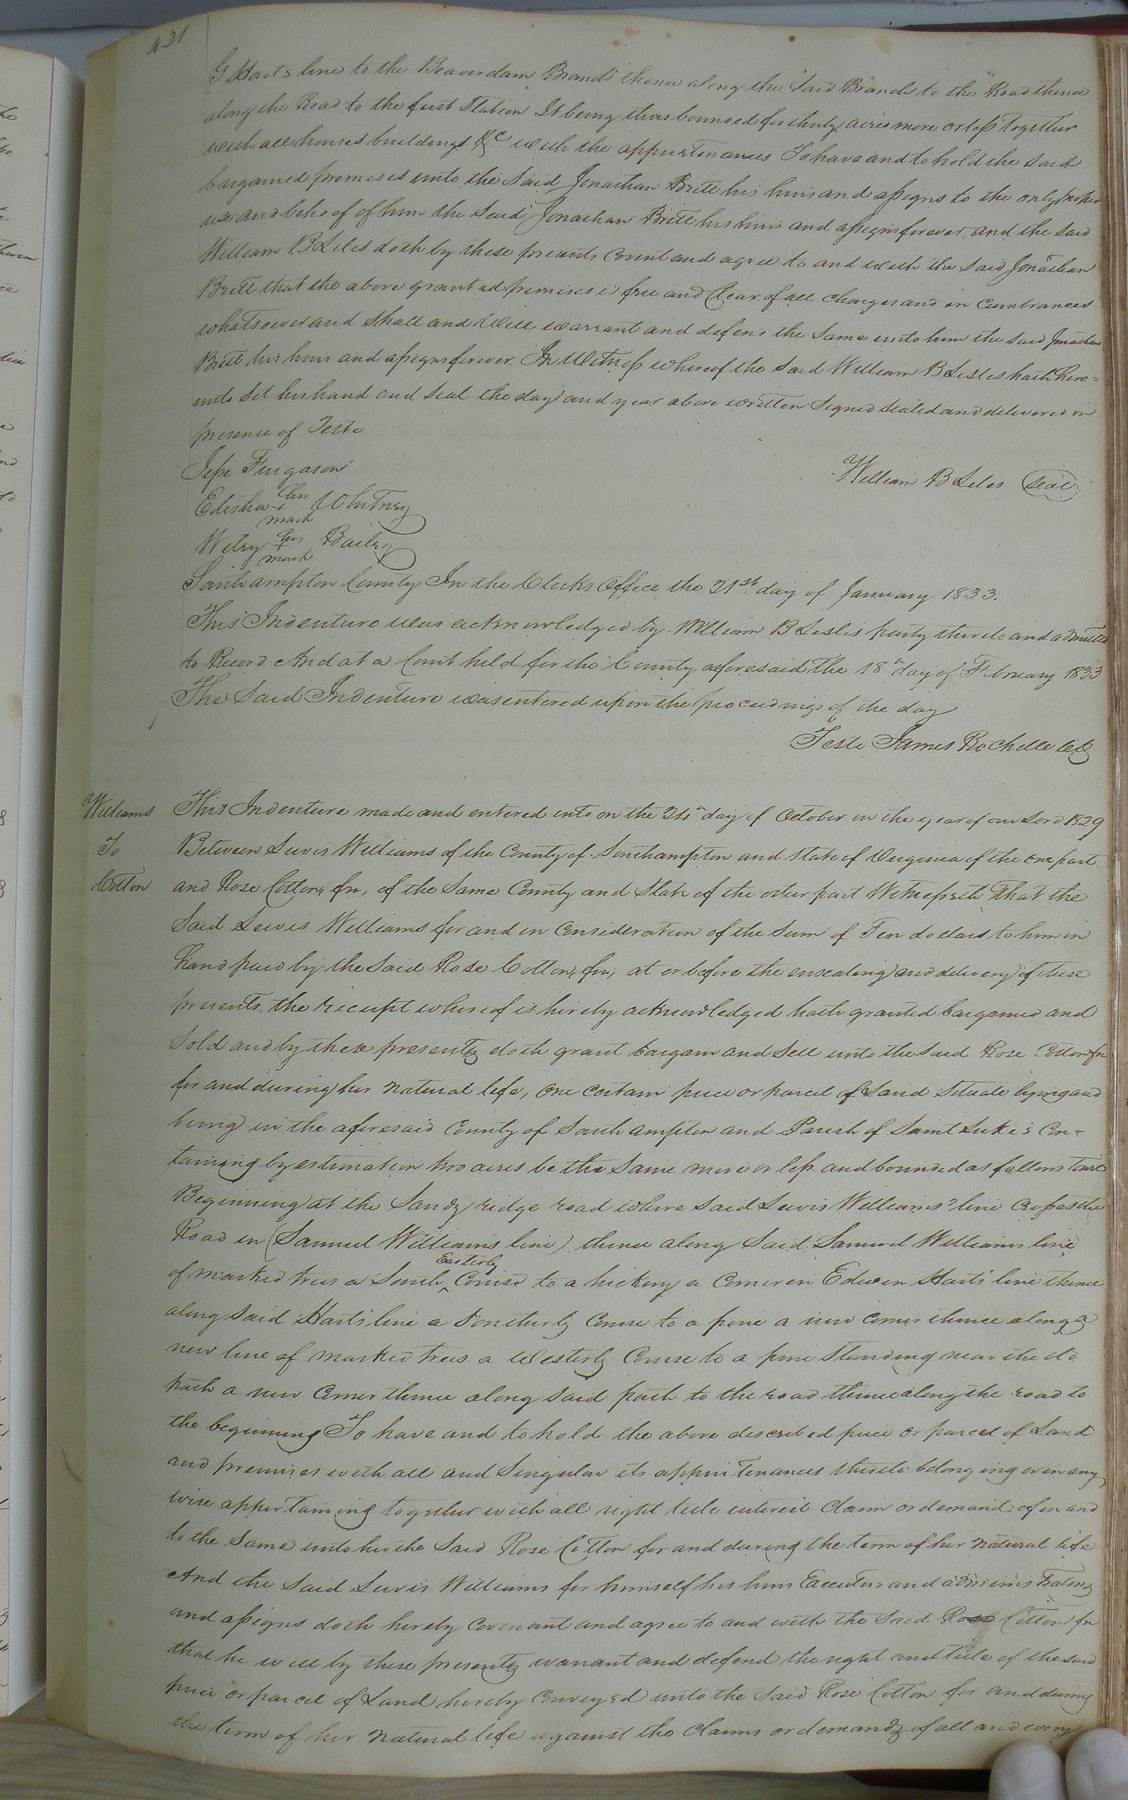 431
G Harts line to the Beaverdam Branch thence along the said Branch to the Road thence
along the Road to the first Station It being thus bounded for thirty acres more or less together
with all houses buildings &c with the appurtenances To have and to hold the said
bargained premises unto the said Jonathan Britt his heirs and assigns to the only proper
use and behoof of him the said Jonathan Britt his heirs and assigns forever and the said
William B Liles doth by these presents covent and agree to and with the said Jonathan
Britt that the above granted premises is free and Clear of all charges and in cumbrances
whatsoever and shall and Will warrant and defend the same unto him the said Jonathan
Britt his heirs and assigns forever. In Witness whereof the said William B Lisles hath here=
unto set his hand and seal the day and year above written Signed Sealed and delivered in
presence of Teste
Jesse Furgason
William B Liles Seal
Edisha his + mark Whitney
his + mark Bailey
Southampton County In the Clerks Office the 21st day of January 1833.
This Indenture was acknowledged by William B Leslis party thereto and admitted
to Record And at a Court held for the County aforesaid the 18th day of February 1833
The Said Indenture was entered upon the proceedings of the day
Teste James Rochelle clk
Williams
To
Cotton
This Indenture made and entered into on the 24th day of October in the year of our Lord 1829
Between Lewis Williams of the County of Southampton and State of Virginia of the one part
and Rose Cotton, fn, of the Same County and State of the other part Witnesseth That the
Said Lewis Williams for and in Consideration of the Sum of Ten dollars to him in
hand paid by the Said Rose Cotton, fn, at or before the ensealing and delivery of these
presents, the receipt whereof is hereby acknowledged hath granted bargained and
Sold and by these presents doth grant bargain and Sell unto the said Rose Cotton fn
for and during her natural life, one certain piece or parcel of Land Situate lying and
being in the aforesaid County of Southampton and Parish of Saint Luke's Con-
taining by estimation two acres be the Same more or less and bounded as follows
Beginning at the Sandy ridge road where said Lewis Williams' line Crosses the
Road in (Samuel Williams line) thence along Said Samuel Williams line
of marked trees a South ^Easterly Course to a hickory a Corner in Edwin Harts line thence
along said Harts line a Course to a pine a new corner thence along a
new line of marked trees a Westerly Course to a pine Standing near the
path a new Corner thence along said path to the road thence along the road to
the beginning To have and to hold the above described piece or parcel of Land
and premises with all and Singular its appurtenances thereto belonging or in any
wise appertaining together with all right title interest claim or demand of in and
to the Same unto her the Said Rose Cotton for and during the term of her natural life
And the Said Lewis Williams for himself his heirs Executors and administrators
and assigns doth hereby Covenant and agree to and with the said Rose Cotton fn
that he will by these presents warrant and defend the right and title of the said
piece or parcel of Land hereby conveyed unto the Said Rose Cotton for and during
the term of her natural life against the claims or demands of all and every